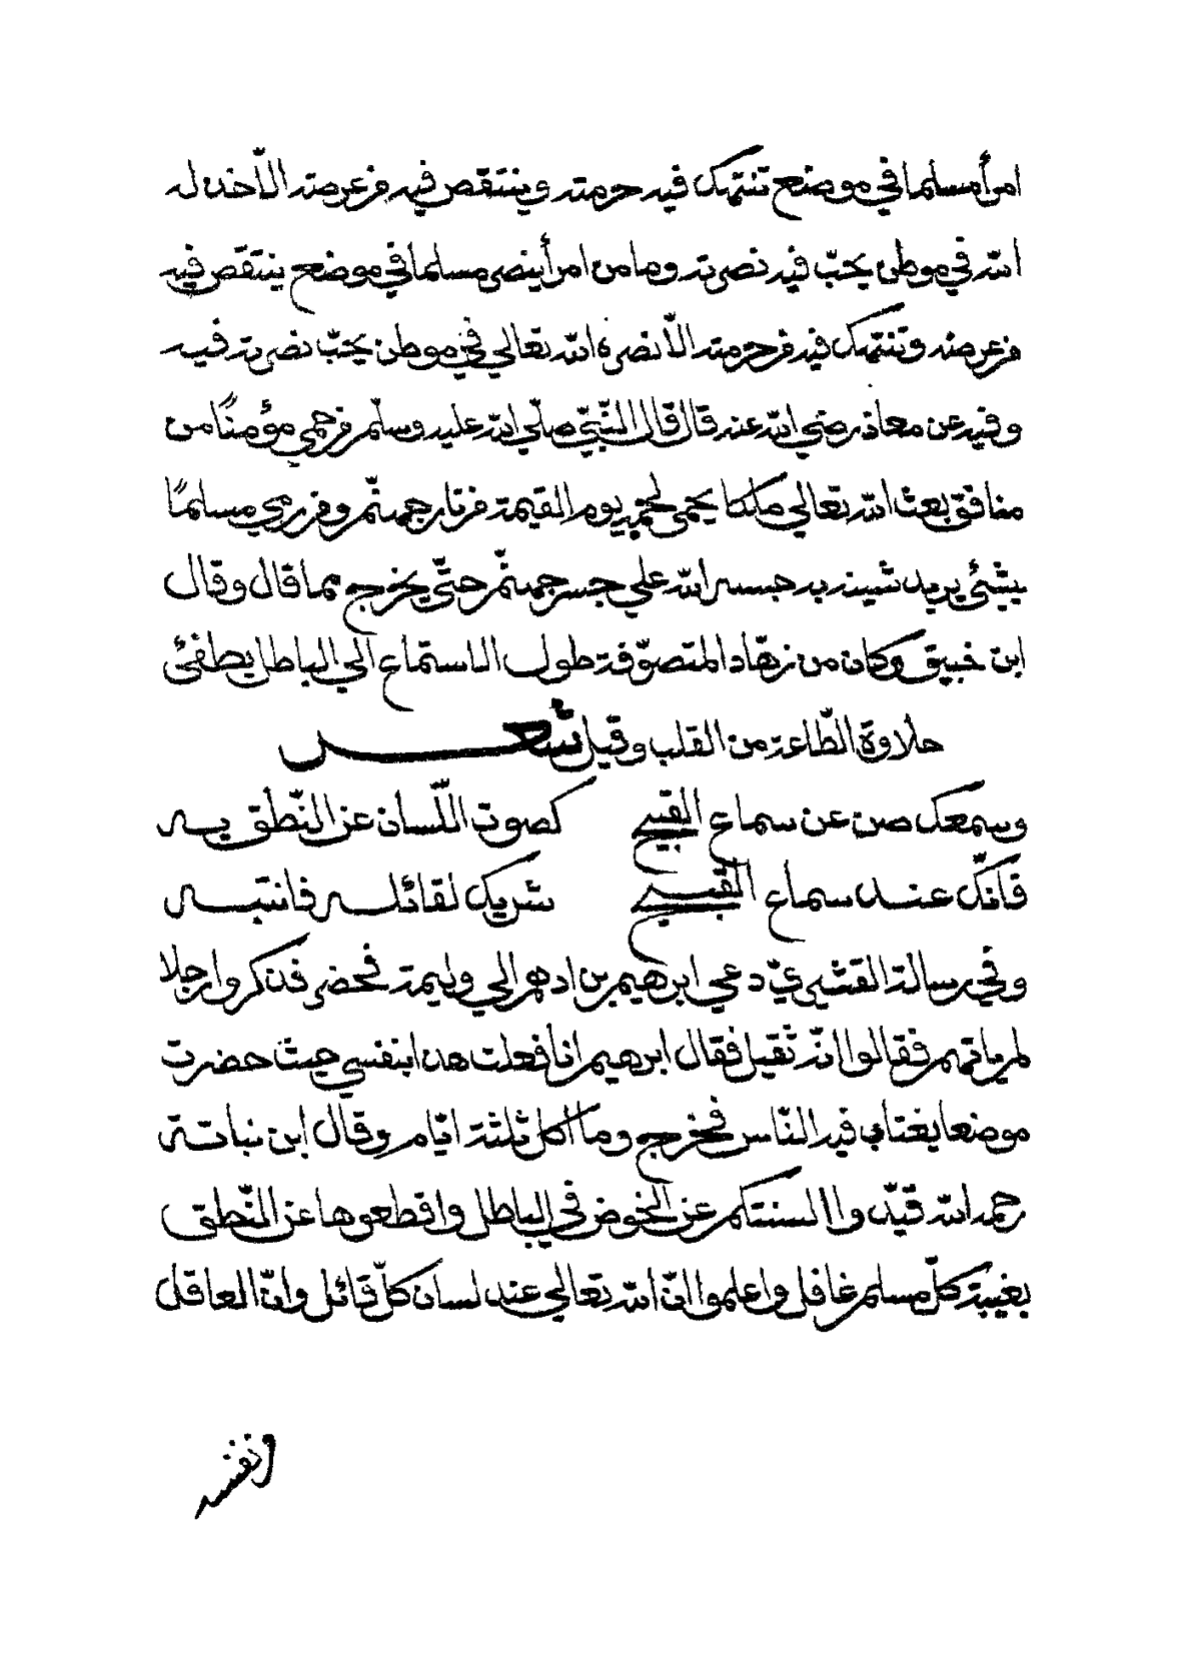 امرأ مسلما في موضع تنتهك فيه حرمته وينتقص فيه من عرضه الّا خذله
الله في موطن يحبّ فيه نصرته وما من امرأ ينصر مسلما في موضع ينتقص فيه
من عرضه وتنتهك فيه من حرمته الّا نصره الله تعالي في موطن يحبّ نصرته فيه
وفيه عن معاذ رضي الله عنه قال قال النّبيّ صلّي الله عليه وسلّم من حمي مؤمنًا من
منافق بعث الله تعالي ملكا يحمي لحمه يوم القيمة من نار جهنّم ومن رمي مسلمًا
بشيئ يريد شينه به حبسه الله علي جسر جهنّم حتّي يخرج مما قال وقال
ابن خبيق وكان من زهّاد المتصوّفة طول الاستماع الي الباطل يطفئ
حلاوة الطّاعة من القلب وقيل شعر
وسمعك صن عن سماع القبيح كصوت اللّسان عن النّطق به
فانّك عند سماع القبيح شريك لقائله فانتبه
وفي رسالة القشيريّ دعي ابرهيم بن ادهم الي وليمة فحضر فذكروا رجلا
لم ياتهم فقالوا انّه ثقيل فقال ابرهيم انا فعلت هذا بنفسي حيث حضرت
موضعا يغتاب فيه النّاس فخرج وما اكل ثلثة ايّام وقال ابن نباتة
رحمه الله قيّدوا السنتكم عن الخوض في الباطل واقطعوها عن النّطق
بغيبة كلّ مسلم غافل واعلموا انّ الله تعالي عند لسان كلّ قائل وانّ العاقل
ونفسه